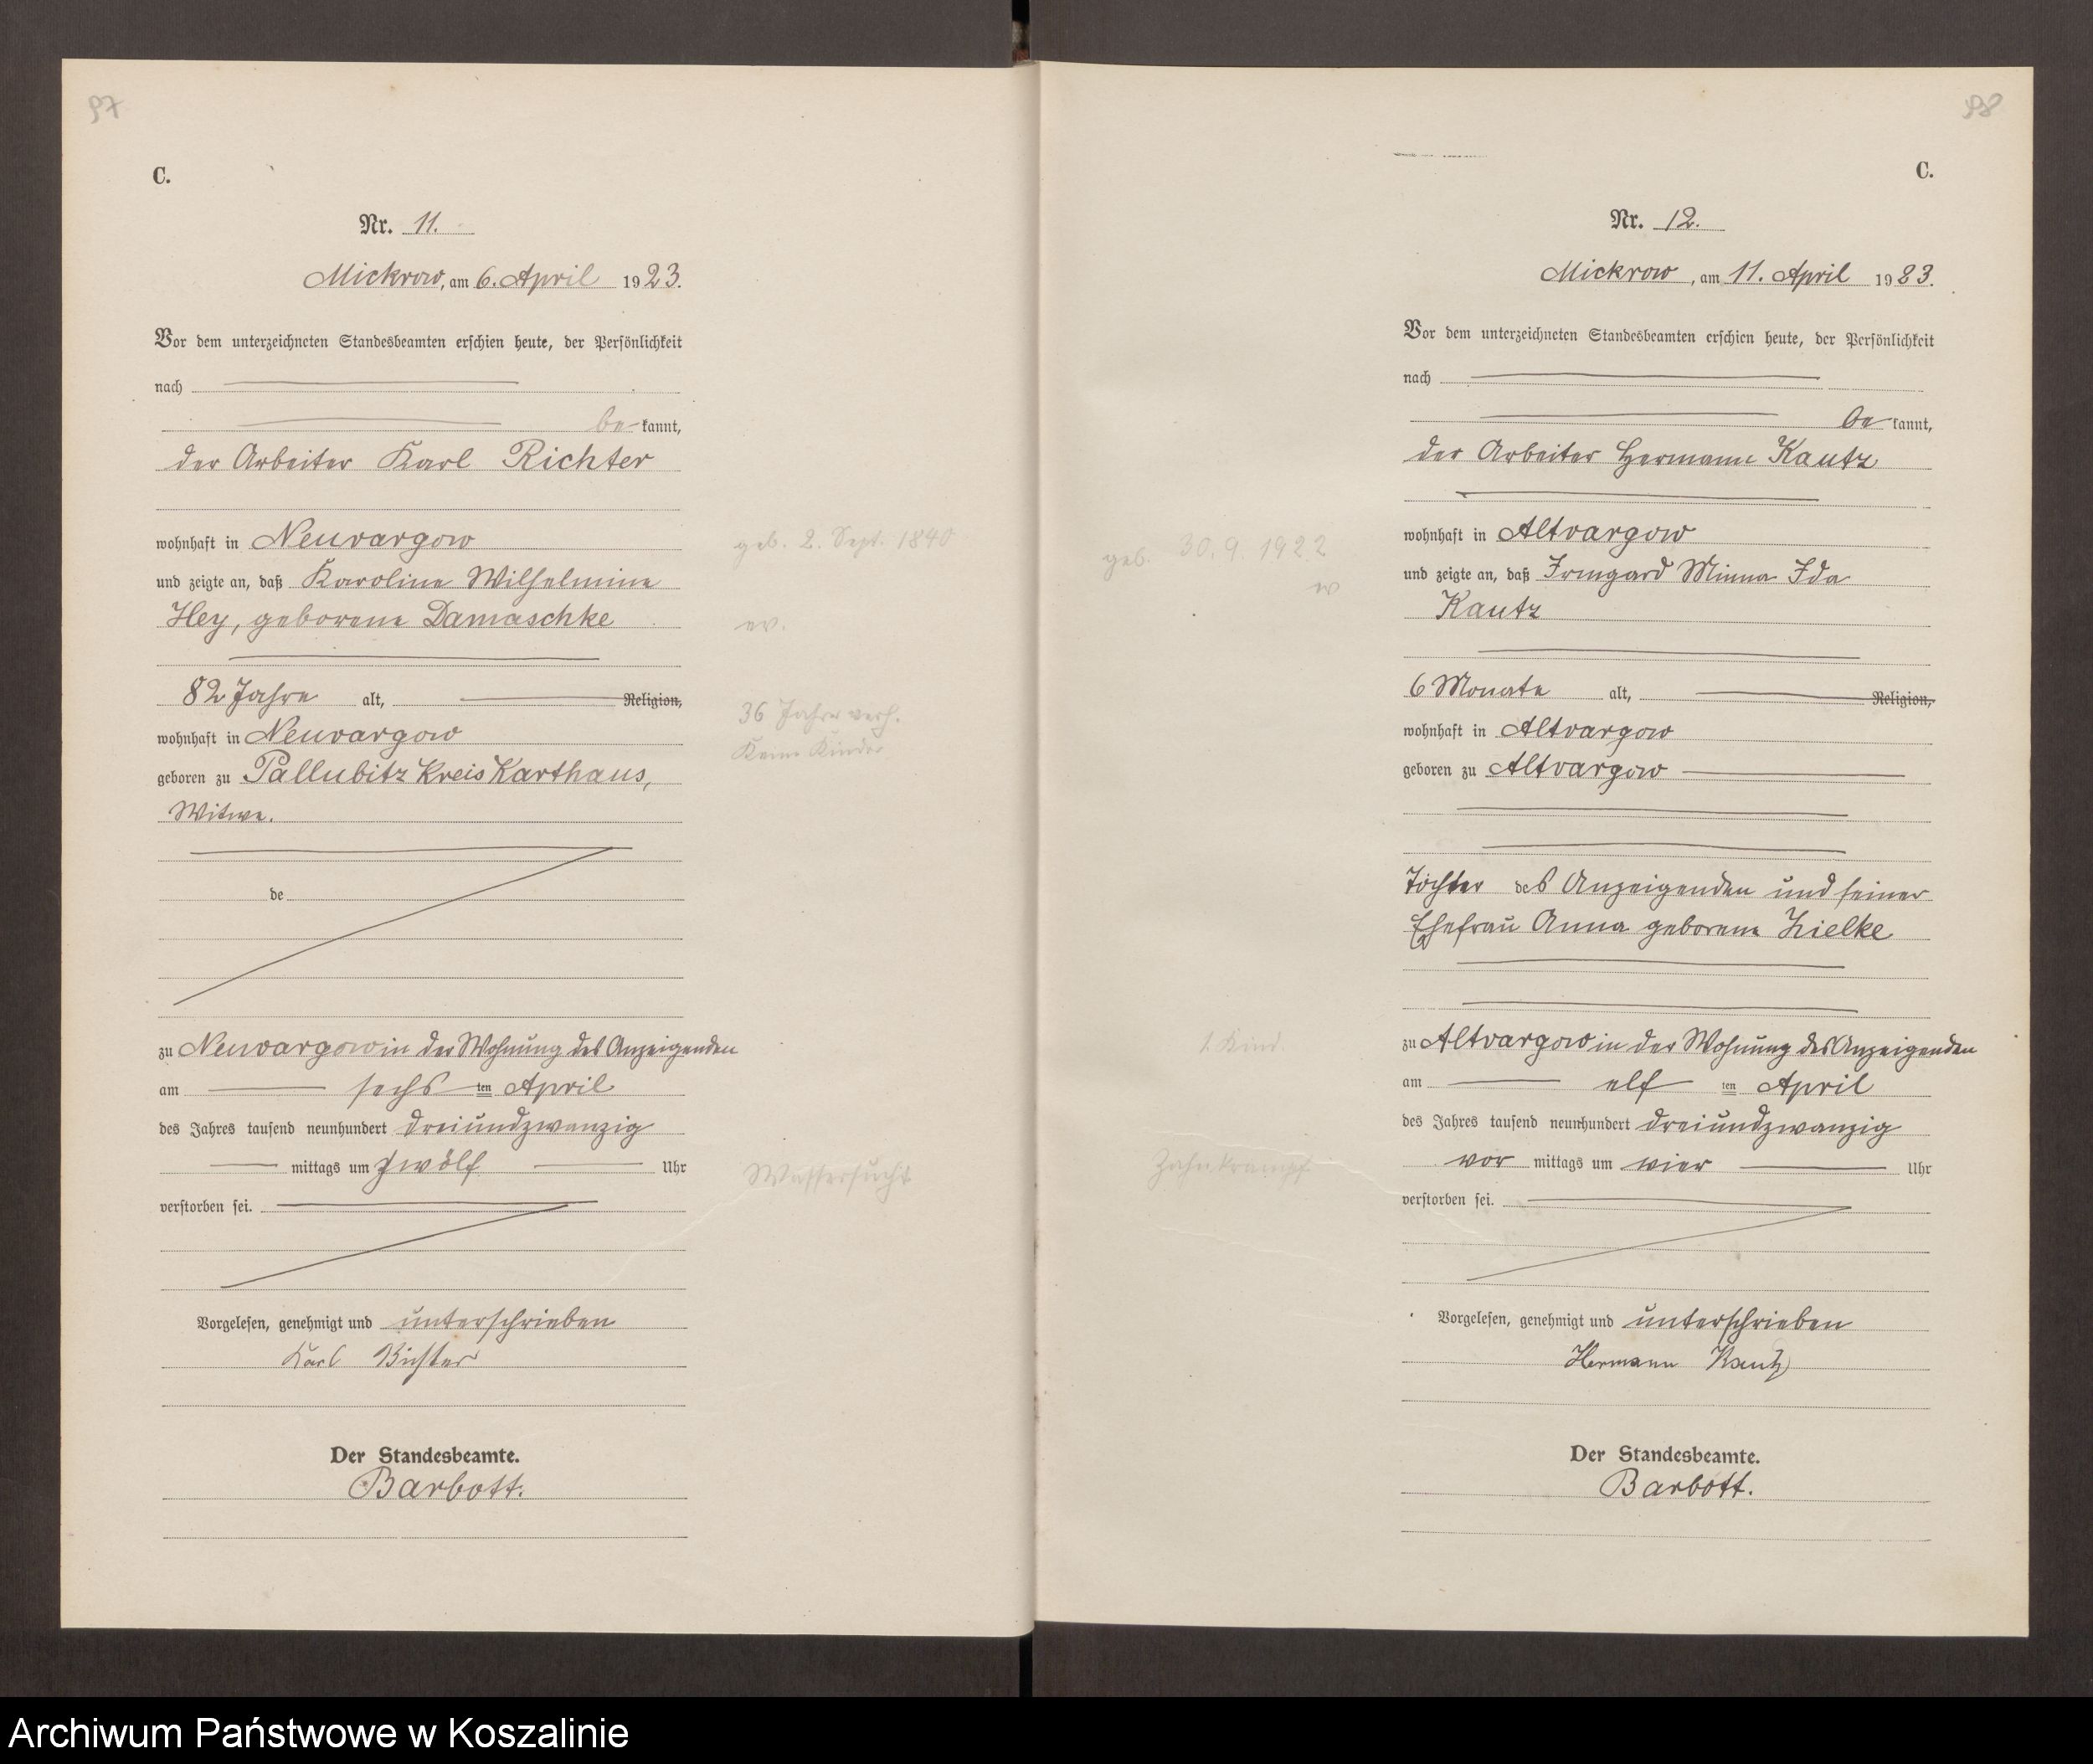 97
C.
Nr. 11.
Mickrow, am 6. April 1923.
Vor dem unterzeichneten Standesbeamten erschien heute, der Persönlichkeit
nach
be kannt,
der Arbeiter Karl Richter
wohnhaft in Neuvargow
und zeigte an, daß Karoline Wilhelmine
Hey, geborene Damaschke
82 Jahre alt, Religion,
wohnhaft in Neuvargow
geboren zu Pallubitz Kreis Karthaus,
Witwe.
de
zu Neuvargow in der Wohnung des Anzeigenden
am sechs ten April
des Jahres tausend neunhundert dreiundzwanzig
mittags um zwölf Uhr
verstorben sei.
Vorgelesen, genehmigt und unterschrieben
Karl Richter
Der Standesbeamte.
Barbott.
geb. 2. Sept. 1840
ev.
36 Jahre verh.
Keine Kinder
Wassersucht
98
C.
Nr. 12.
Mickrow, am 11. April 1923.
Vor dem unterzeichneten Standesbeamten erschien heute, der Persönlichkeit
nach
be kannt,
der Arbeiter Hermann Kautz
wohnhaft in Altvargow
und zeigte an, daß Irmgard Minna Ida
Kautz
6 Monate alt, Religion,
wohnhaft in Altvargow
geboren zu Altvargow
Tochter des Anzeigenden und seiner
Ehefrau Anna geborene Zielke
zu Altvargow in der Wohnung des Anzeigenden
am elf ten April
des Jahres tausend neunhundert dreiundzwanzig
vor mittags um vier Uhr
verstorben sei.
Vorgelesen, genehmigt und unterschrieben
Hermann Kautz
Der Standesbeamte.
Barbott.
geb. 30. 9. 1922
1. Kind.
Zahnkrampf
Archiwum Państwowe w Koszalinie